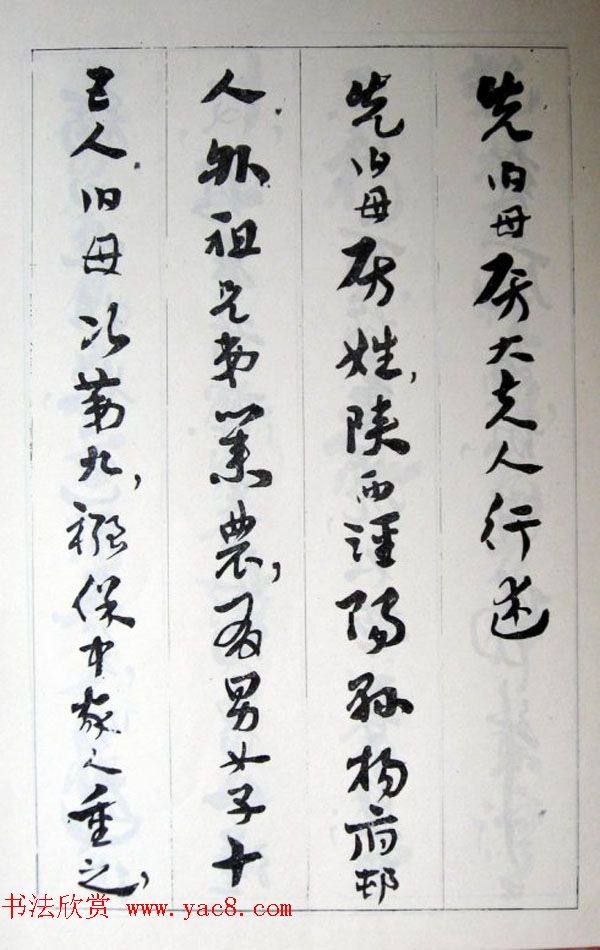 先伯母房太夫人行述
先伯母房姓，陕西泾阳孙杨府邨
人。外祖兄弟業農，有男女子十
五人。伯母次第九，襁保中家人重之，
书法欣赏 www.yac8.com